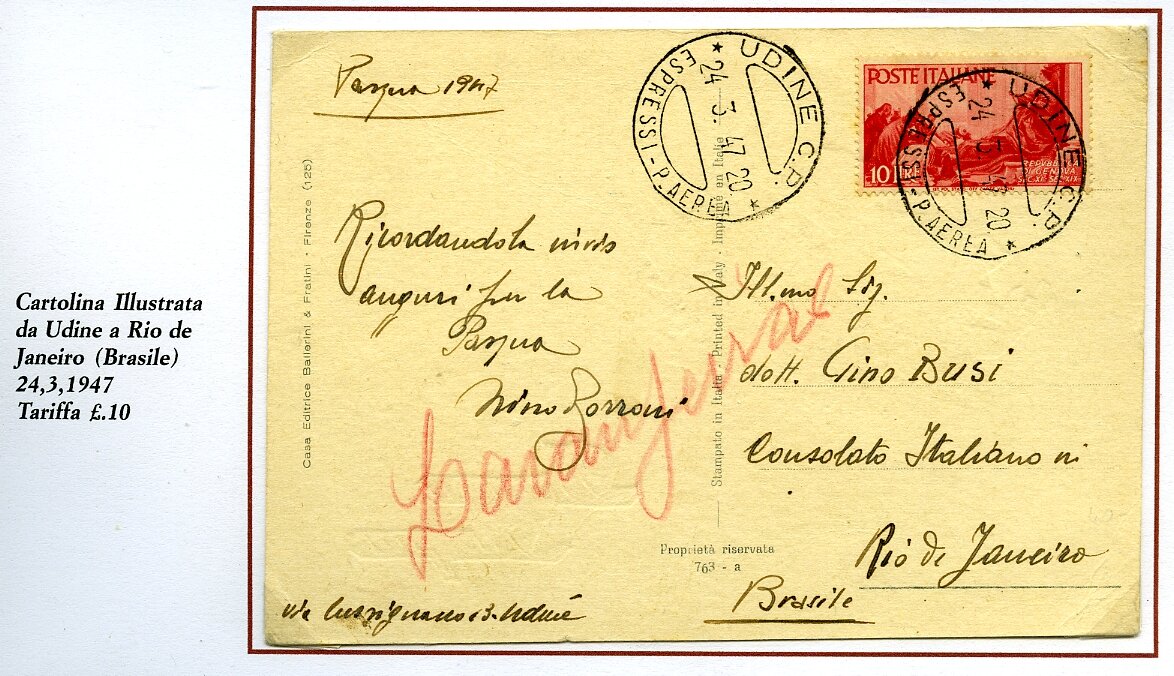 Cartolina Illustrata
da Udine a Rio de
Janeiro (Brasile)
24,3,1947
Tariffa £.10
Pasqua 1947
UDINE C.P.
24 3. 47. 20
ESPRESSI - P. AEREA
POSTE ITALIANE
10 LIRE
REPVBBLICA
DI GENOVA
SEC. XII SEC. XIX
UDINE C.P.
24 20
ESPRESSI - P. AEREA
Casa Editrice Ballerini & Fratini - Firenze (125)
Ricordandola invio
auguri per la
Pasqua
Nino
Stampato in Italia - Printed in Italy - Imprimé en Italie
Ill.mo Sig.
dott. Gino Busi
Consolato Italiano in
Rio de Janeiro
Brasile
Laranjeiras
Proprietà riservata
763 - a
via 13 - Udine